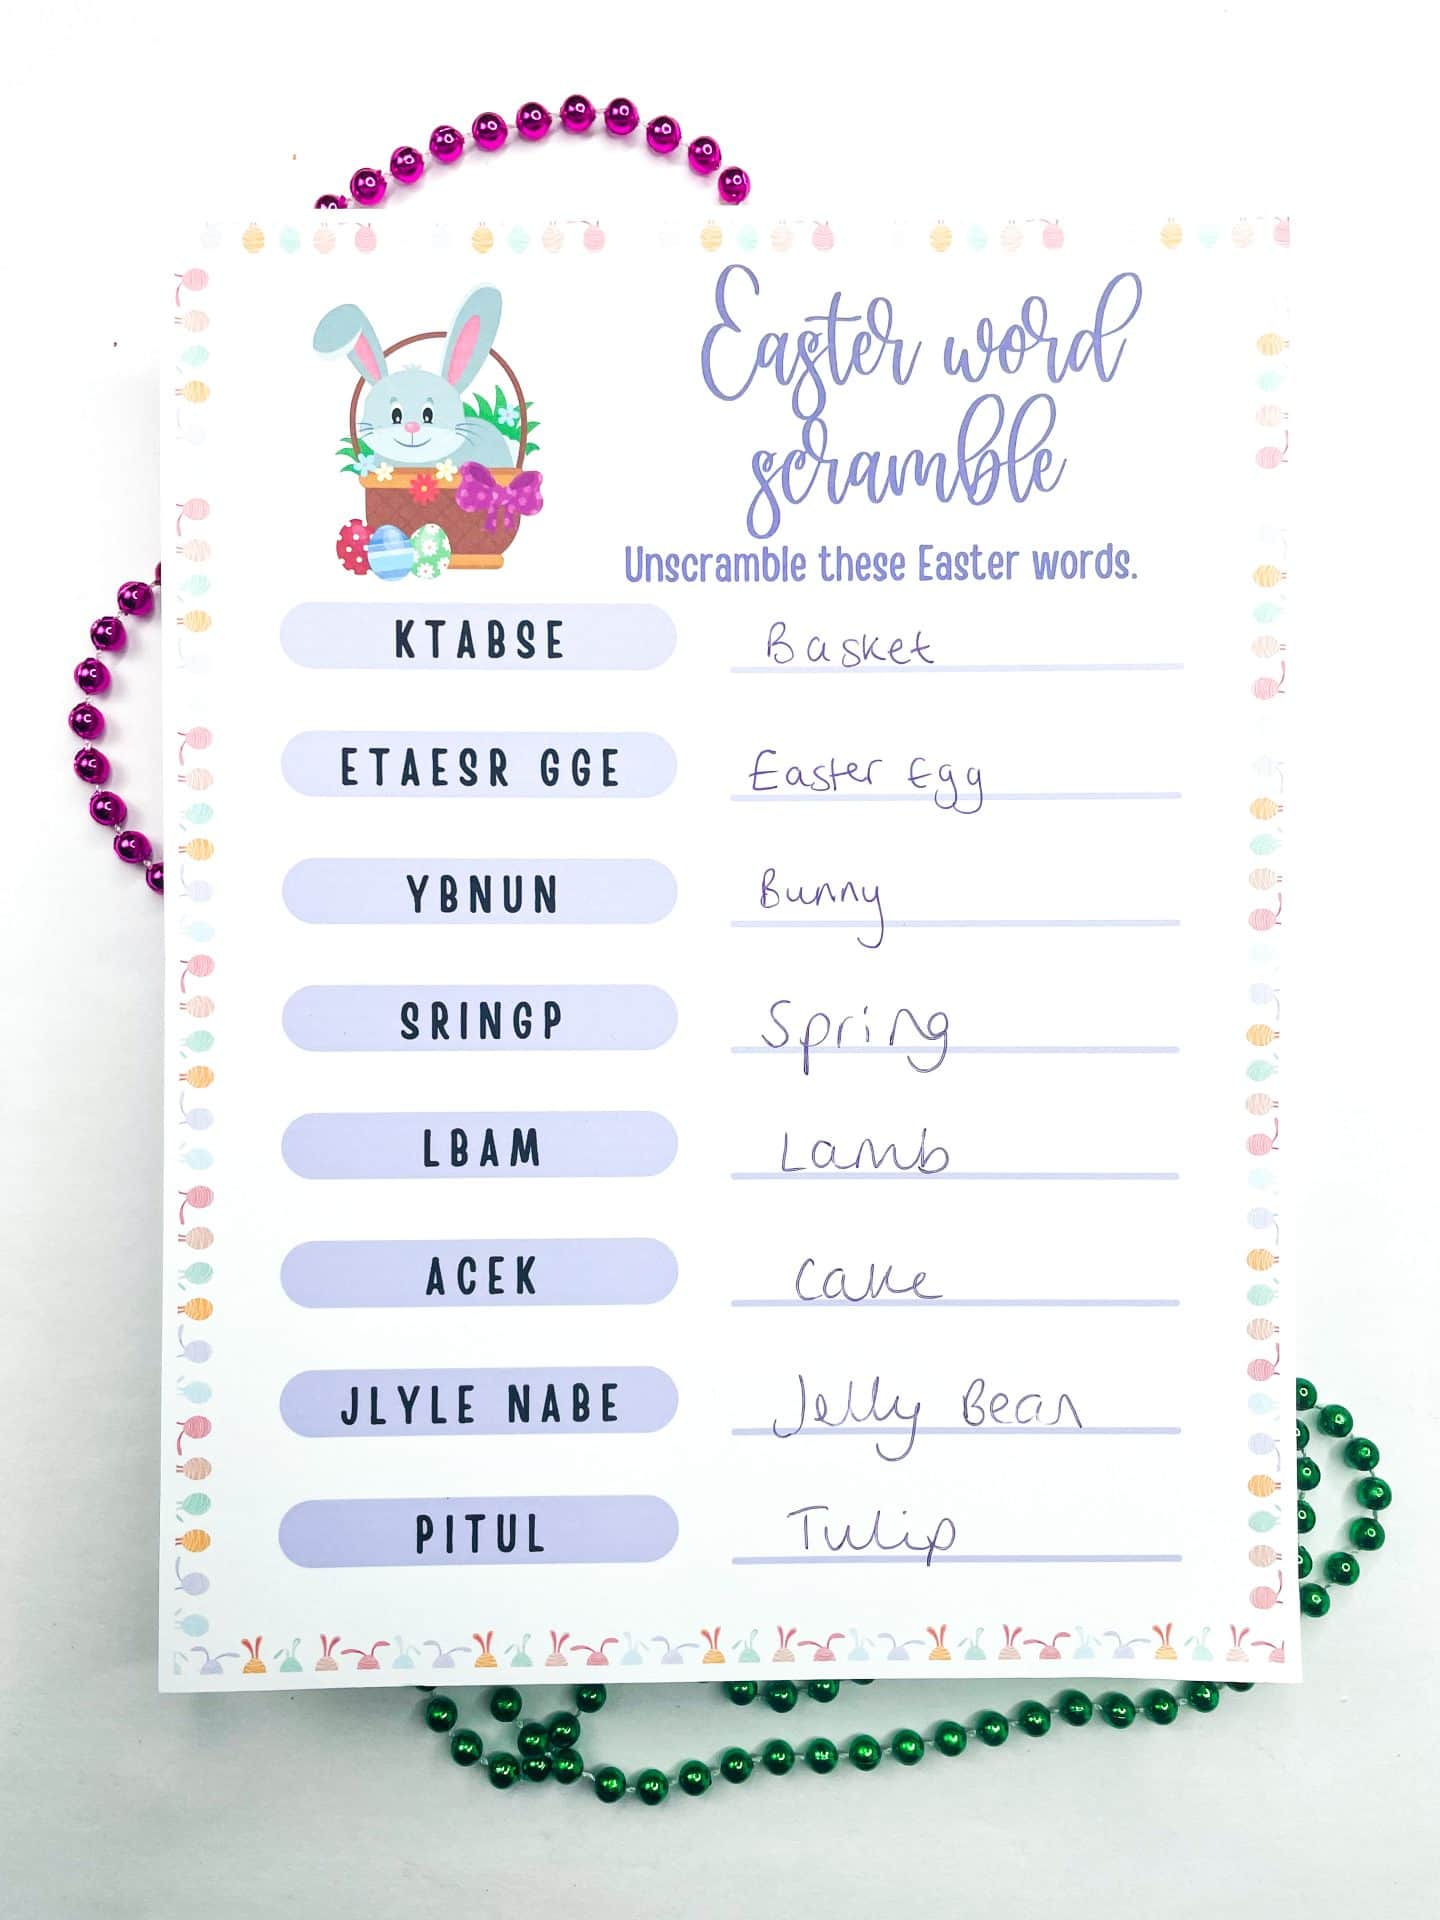 Easter word
scramble
Unscramble these Easter words.
KTABSE Basket
ETAESR GGE Easter Egg
YBNUN Bunny
SRINGP Spring
LBAM Lamb
ACEK Cake
JLYLE NABE Jelly Bean
PITUL Tulip